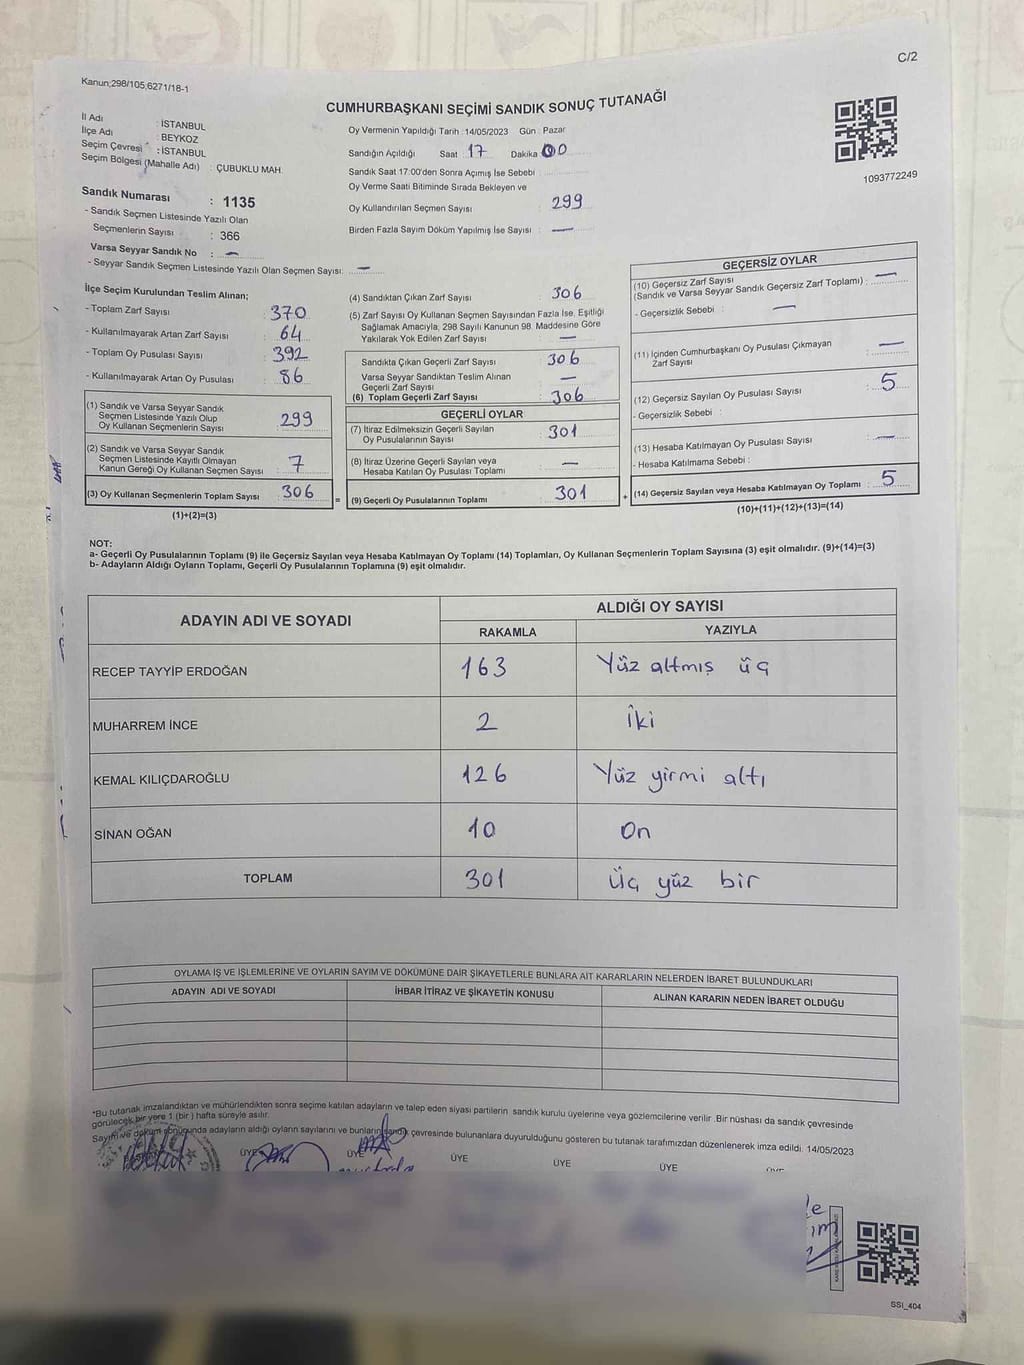 C/2
Kanun;298/105,6271/18-1
CUMHURBAŞKANI SEÇİMİ SANDIK SONUÇ TUTANAĞI
İl Adı : İSTANBUL
İlçe Adı : BEYKOZ
Seçim Çevresi : İSTANBUL
Seçim Bölgesi (Mahalle Adı) : ÇUBUKLU MAH.
Sandık Numarası : 1135
- Sandık Seçmen Listesinde Yazılı Olan
Seçmenlerin Sayısı : 366
Varsa Seyyar Sandık No : —
- Seyyar Sandık Seçmen Listesinde Yazılı Olan Seçmen Sayısı: —
Oy Vermenin Yapıldığı Tarih : 14/05/2023 Gün : Pazar
Sandığın Açıldığı Saat 17 Dakika 00
Sandık Saat 17:00'den Sonra Açımış İse Sebebi :
Oy Verme Saati Bitiminde Sırada Bekleyen ve
Oy Kullandırılan Seçmen Sayısı : 299
Birden Fazla Sayım Döküm Yapılmış İse Sayısı : —
1093772249
İlçe Seçim Kurulundan Teslim Alınan;
- Toplam Zarf Sayısı : 370
- Kullanılmayarak Artan Zarf Sayısı : 64
- Toplam Oy Pusulası Sayısı : 392
- Kullanılmayarak Artan Oy Pusulası : 86
(1) Sandık ve Varsa Seyyar Sandık
Seçmen Listesinde Yazılı Olup
Oy Kullanan Seçmenlerin Sayısı : 299
(2) Sandık ve Varsa Seyyar Sandık
Seçmen Listesinde Kayıtlı Olmayan
Kanun Gereği Oy Kullanan Seçmen Sayısı : 7
(3) Oy Kullanan Seçmenlerin Toplam Sayısı : 306
(1)+(2)=(3)
(4) Sandıktan Çıkan Zarf Sayısı : 306
(5) Zarf Sayısı Oy Kullanan Seçmen Sayısından Fazla İse, Eşitliği
Sağlamak Amacıyla, 298 Sayılı Kanunun 98. Maddesine Göre
Yakılarak Yok Edilen Zarf Sayısı : —
Sandıkta Çıkan Geçerli Zarf Sayısı : 306
Varsa Seyyar Sandıktan Teslim Alınan
Geçerli Zarf Sayısı : —
(6) Toplam Geçerli Zarf Sayısı : 306
GEÇERLİ OYLAR
(7) İtiraz Edilmeksizin Geçerli Sayılan
Oy Pusulalarının Sayısı : 301
(8) İtiraz Üzerine Geçerli Sayılan veya
Hesaba Katılan Oy Pusulası Toplamı : —
= (9) Geçerli Oy Pusulalarının Toplamı : 301
GEÇERSİZ OYLAR
(10) Geçersiz Zarf Sayısı
(Sandık ve Varsa Seyyar Sandık Geçersiz Zarf Toplamı) : —
- Geçersizlik Sebebi : —
(11) İçinden Cumhurbaşkanı Oy Pusulası Çıkmayan
Zarf Sayısı : —
(12) Geçersiz Sayılan Oy Pusulası Sayısı : 5
- Geçersizlik Sebebi :
(13) Hesaba Katılmayan Oy Pusulası Sayısı : —
- Hesaba Katılmama Sebebi :
+ (14) Geçersiz Sayılan veya Hesaba Katılmayan Oy Toplamı : 5
(10)+(11)+(12)+(13)=(14)
NOT:
a- Geçerli Oy Pusulalarının Toplamı (9) ile Geçersiz Sayılan veya Hesaba Katılmayan Oy Toplamı (14) Toplamları, Oy Kullanan Seçmenlerin Toplam Sayısına (3) eşit olmalıdır. (9)+(14)=(3)
b- Adayların Aldığı Oyların Toplamı, Geçerli Oy Pusulalarının Toplamına (9) eşit olmalıdır.
ADAYIN ADI VE SOYADI ALDIĞI OY SAYISI
RAKAMLA YAZIYLA
RECEP TAYYİP ERDOĞAN 163 Yüz altmış üç
MUHARREM İNCE 2 İki
KEMAL KILIÇDAROĞLU 126 Yüz yirmi altı
SİNAN OĞAN 10 On
TOPLAM 301 Üç yüz bir
OYLAMA İŞ VE İŞLEMLERİNE VE OYLARIN SAYIM VE DÖKÜMÜNE DAİR ŞİKAYETLERLE BUNLARA AİT KARARLARIN NELERDEN İBARET BULUNDUKLARI
ADAYIN ADI VE SOYADI İHBAR İTİRAZ VE ŞİKAYETİN KONUSU ALINAN KARARIN NEDEN İBARET OLDUĞU
*Bu tutanak imzalandıktan ve mühürlendikten sonra seçime katılan adayların ve talep eden siyasi partilerin sandık kurulu üyelerine veya gözlemcilerine verilir. Bir nüshası da sandık çevresinde
görülecek bir yere 1 (bir ) hafta süreyle asılır.
Sayım ve döküm sonucunda adayların aldığı oyların sayılarını ve bunların sandık çevresinde bulunanlara duyurulduğunu gösteren bu tutanak tarafımızdan düzenlenerek imza edildi. 14/05/2023
ÜYE ÜYE ÜYE ÜYE ÜYE
SSI_404